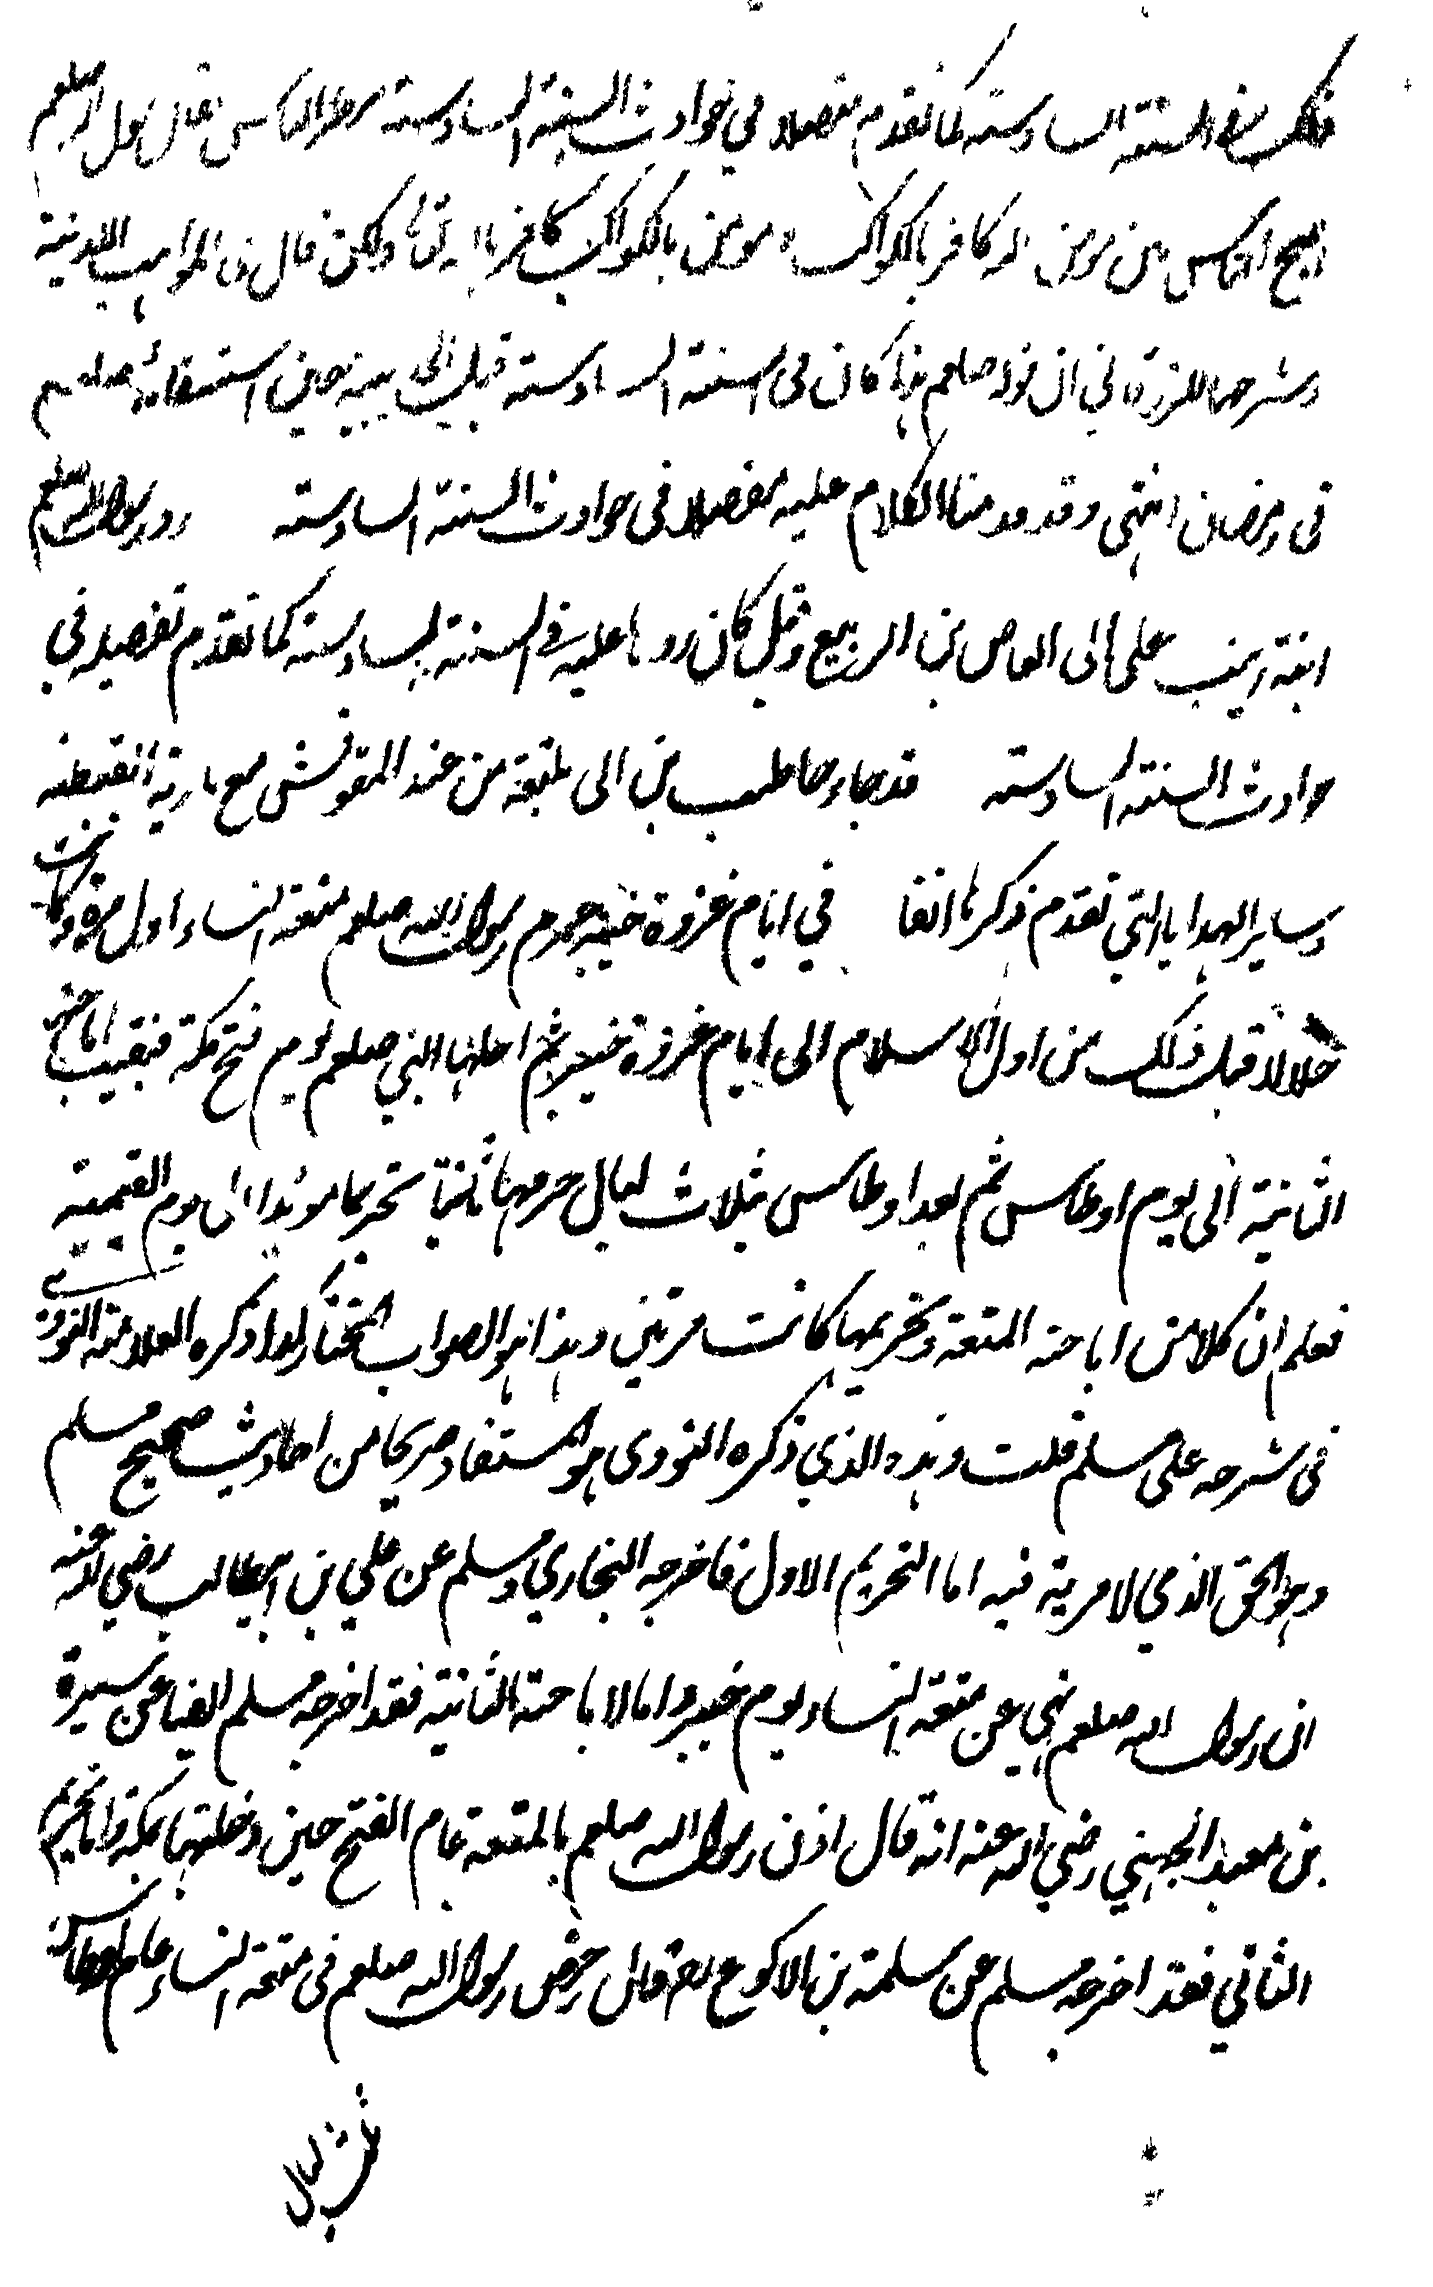 ذلك في السنة السادسة كما تقدم مفصلا في حوادث السنة السادسة مطر الناس فقال رسول الله صلعم
اصبح الناس بين مومن بالله كافر بالكواكب ومومن بالكواكب كافر بالله تعالى ولكن قال في المواهب اللدنية
وشرحها للزرقاني ان قوله صلعم هذا كان في السنة السادسة قبل الحديبية حين استسقائه صلعم
في رمضان انتهى وقد قدمنا الكلام عليه مفصلا في حوادث السنة السادسة رد رسول الله صلعم
ابنته زينب على ابى العاص بن الربيع وقيل كان ردها عليه في السنة السادسة كما تقدم تفصيله في
حوادث السنة السادسة قد جاء حاطب بن ابى بلتعة من عند المقوقس مع مارية القبطية
وساير الهدايا التي تقدم ذكرها انفا في ايام غزوة خيبر حرم رسول الله صلعم متعة النساء اول مرة وكانت
حلالا قبل ذلك من اول الاسلام الى ايام غزوة خيبر ثم احلها النبي صلعم يوم فتح مكة فبقيت اباحتها
الثانية الى يوم اوطاس ثم بعد اوطاس بثلاث ليال حرمها ثانيا تحريما موبدا الى يوم القيمة
فعلم ان كلا من اباحة المتعة وتحريمها كانت مرتين وهذا هو الصواب المختار كذا ذكره العلامة النووي
في شرحه على مسلم قلت وهذه الذي ذكره النووى هو المستفاد صريحا من احاديث صحيح مسلم
وهو الحق الذي لا مرية فيه اما التحريم الاول فاخرجه البخاري ومسلم عن علي بن ابيطالب رضي الله عنه
ان رسول الله صلعم نهى عن متعة النساء يوم خيبر واما الاباحة الثانية فقد اخرجه مسلم ايضا عن سبرة
بن معبد الجهني رضي الله عنه انه قال اذن رسول الله صلعم بالمتعة عام الفتح حين دخلنها مكة واما التحريم
الثاني فقد اخرجه مسلم عن سلمة بن الاكوع انه قال رخص رسول الله صلعم في متعة النساء عام اوطاس
ثلث ليال